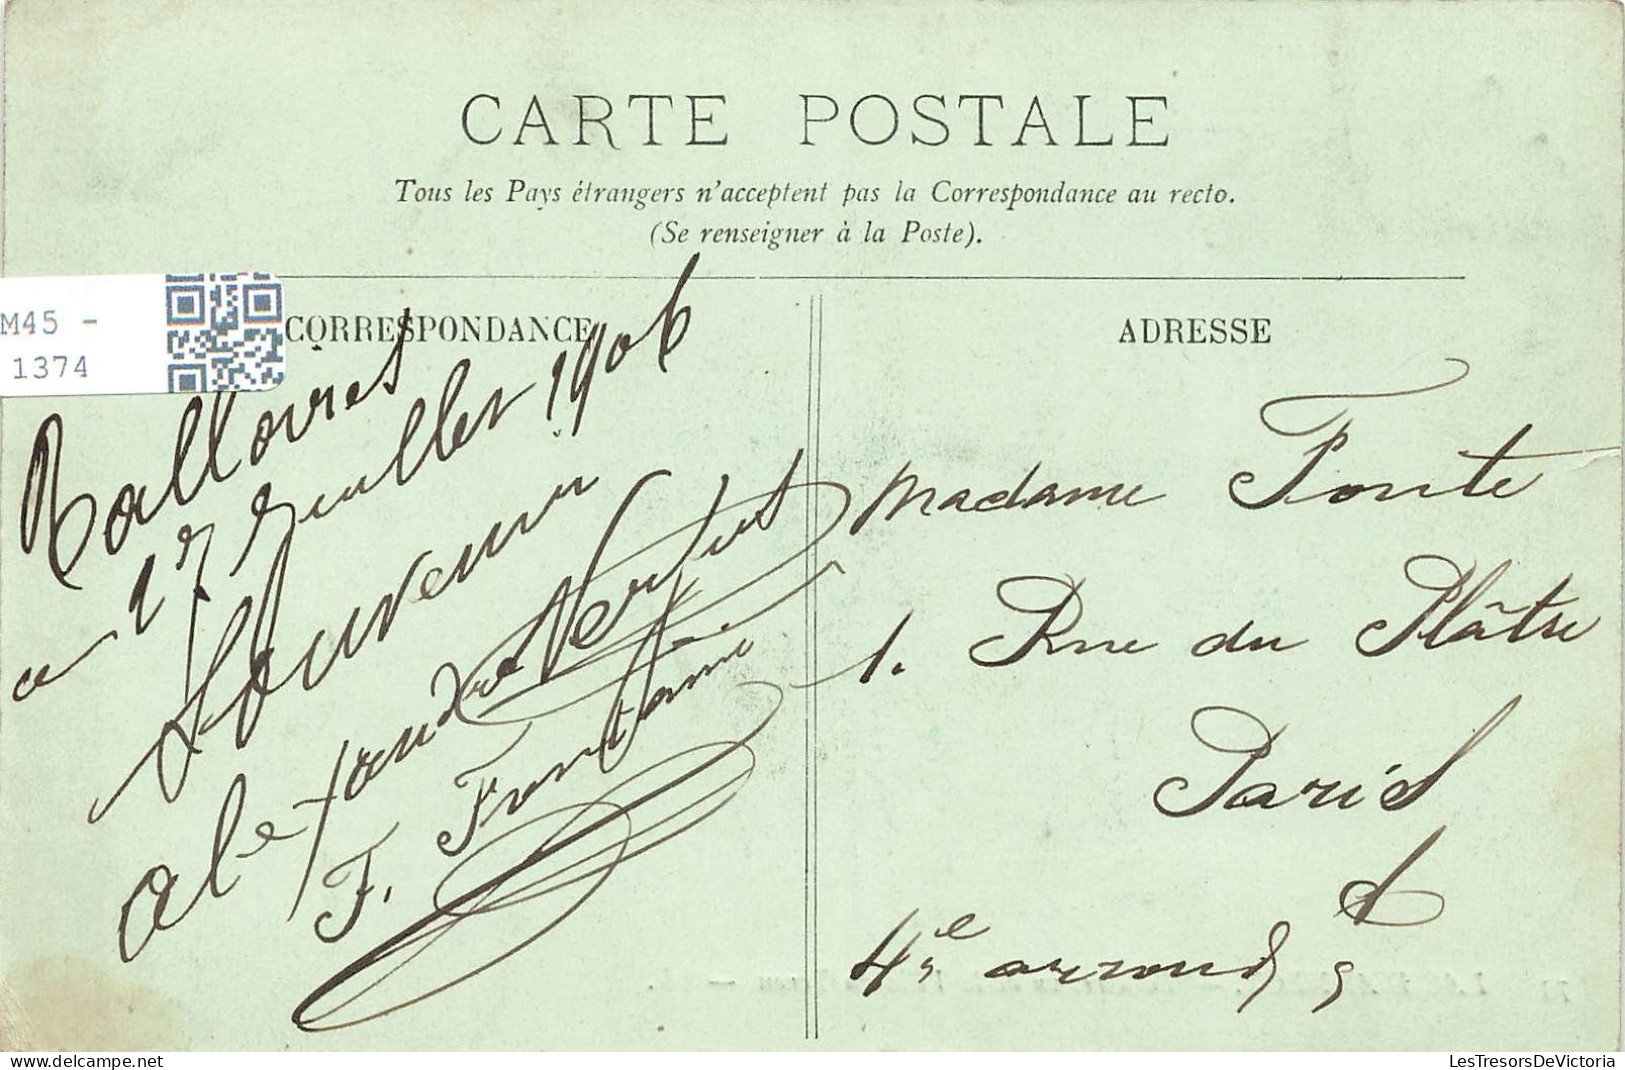 CARTE POSTALE
Tous les Pays étrangers n'acceptent pas la Correspondance au recto.
(Se renseigner à la Poste).
M45 -
1374
CORRESPONDANCE
Talloires
17 Juillet 1906
Souvenir
Alexandre
F. Fontaine
ADRESSE
Madame Fonte
1. Rue du Plâtre
Paris
4e arrond
LesTresorsDeVictoria